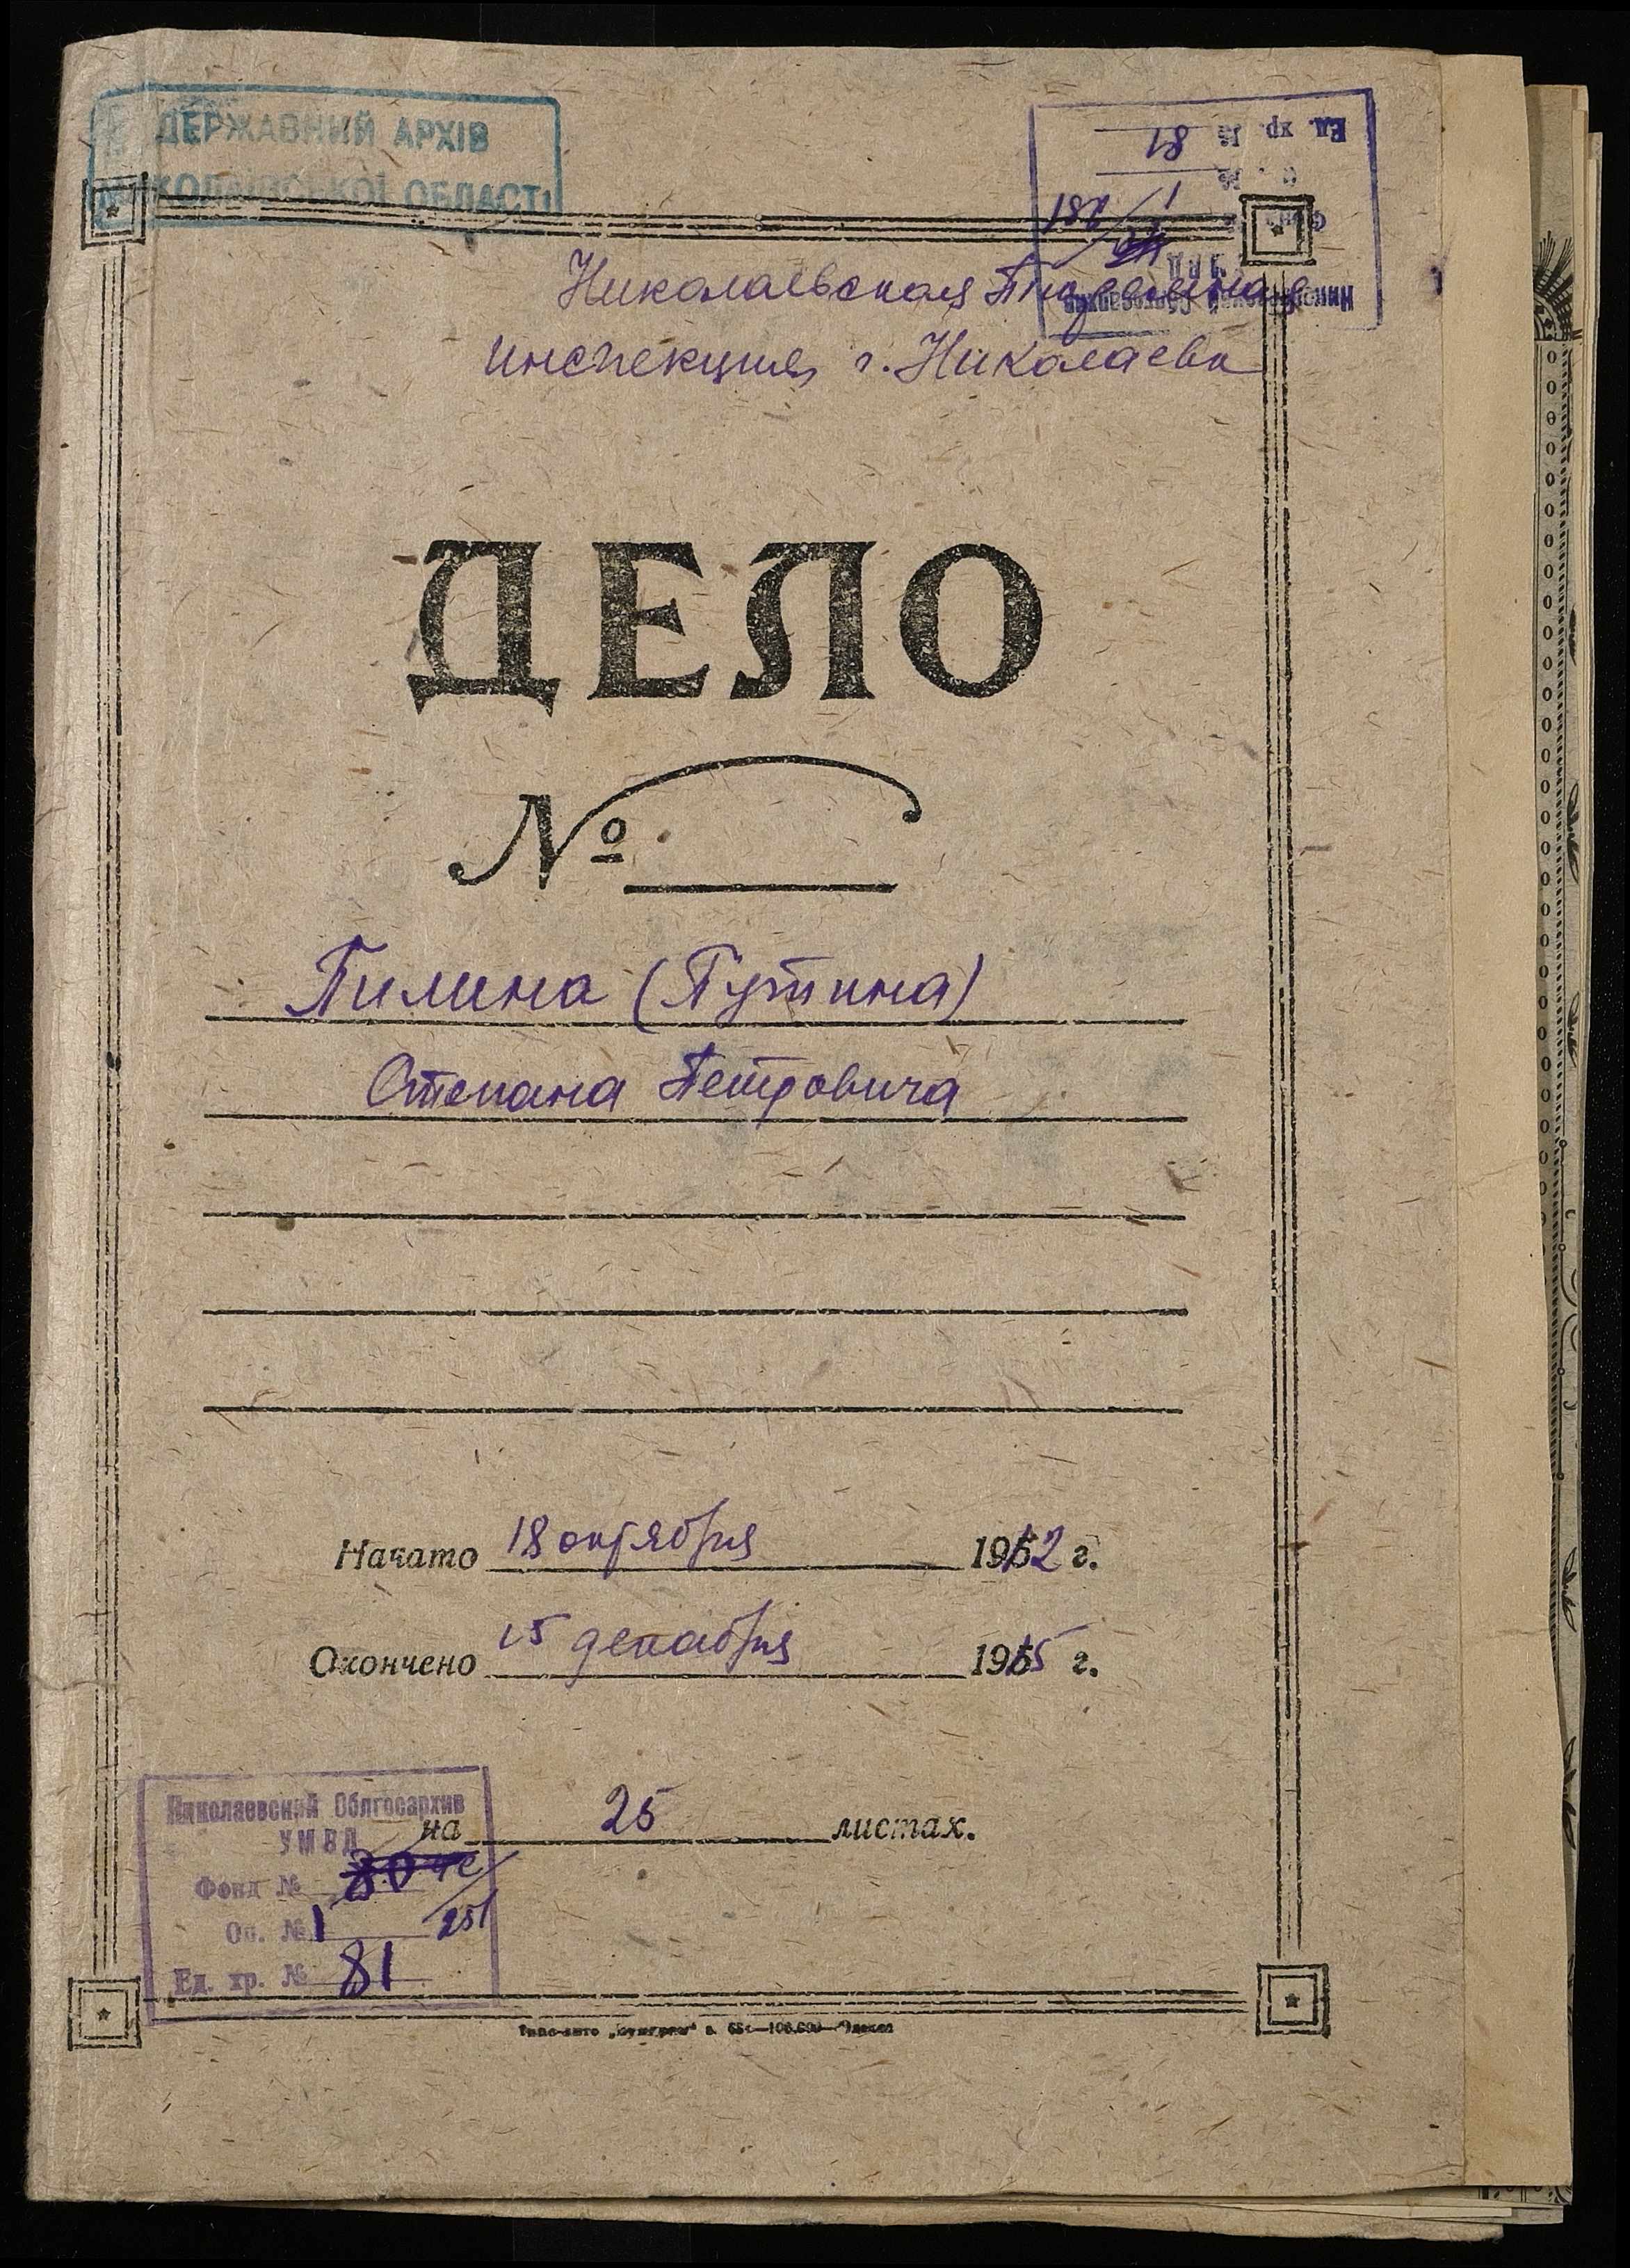 ДЕРЖАВНИЙ АРХІВ
МИКОЛАЇВСЬКОЇ ОБЛАСТІ
Ед. хр. № 81
Николаевская Тюремная
инспекция г. Николаева
ДЕЛО
№
Пилина (Путина)
Степана Петровича
Начато 18 октября 1912 г.
Окончено 15 декабря 1915 г.
на 25 листах.
Николаевский Облгосархив
УМВД
Фонд №
Оп. № 1
Ед. хр. № 81